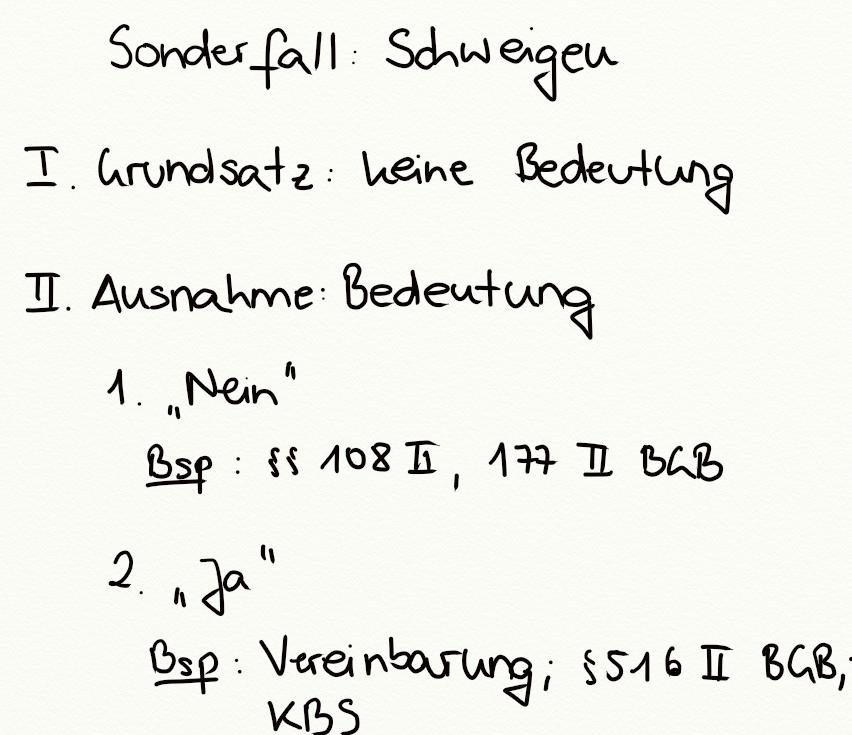 Sonderfall: Schweigen
I. Grundsatz: keine Bedeutung
II. Ausnahme: Bedeutung
1. „Nein"
Bsp: §§ 108 II, 177 II BGB
2. „Ja"
Bsp: Vereinbarung; § 516 II BGB;
KBS